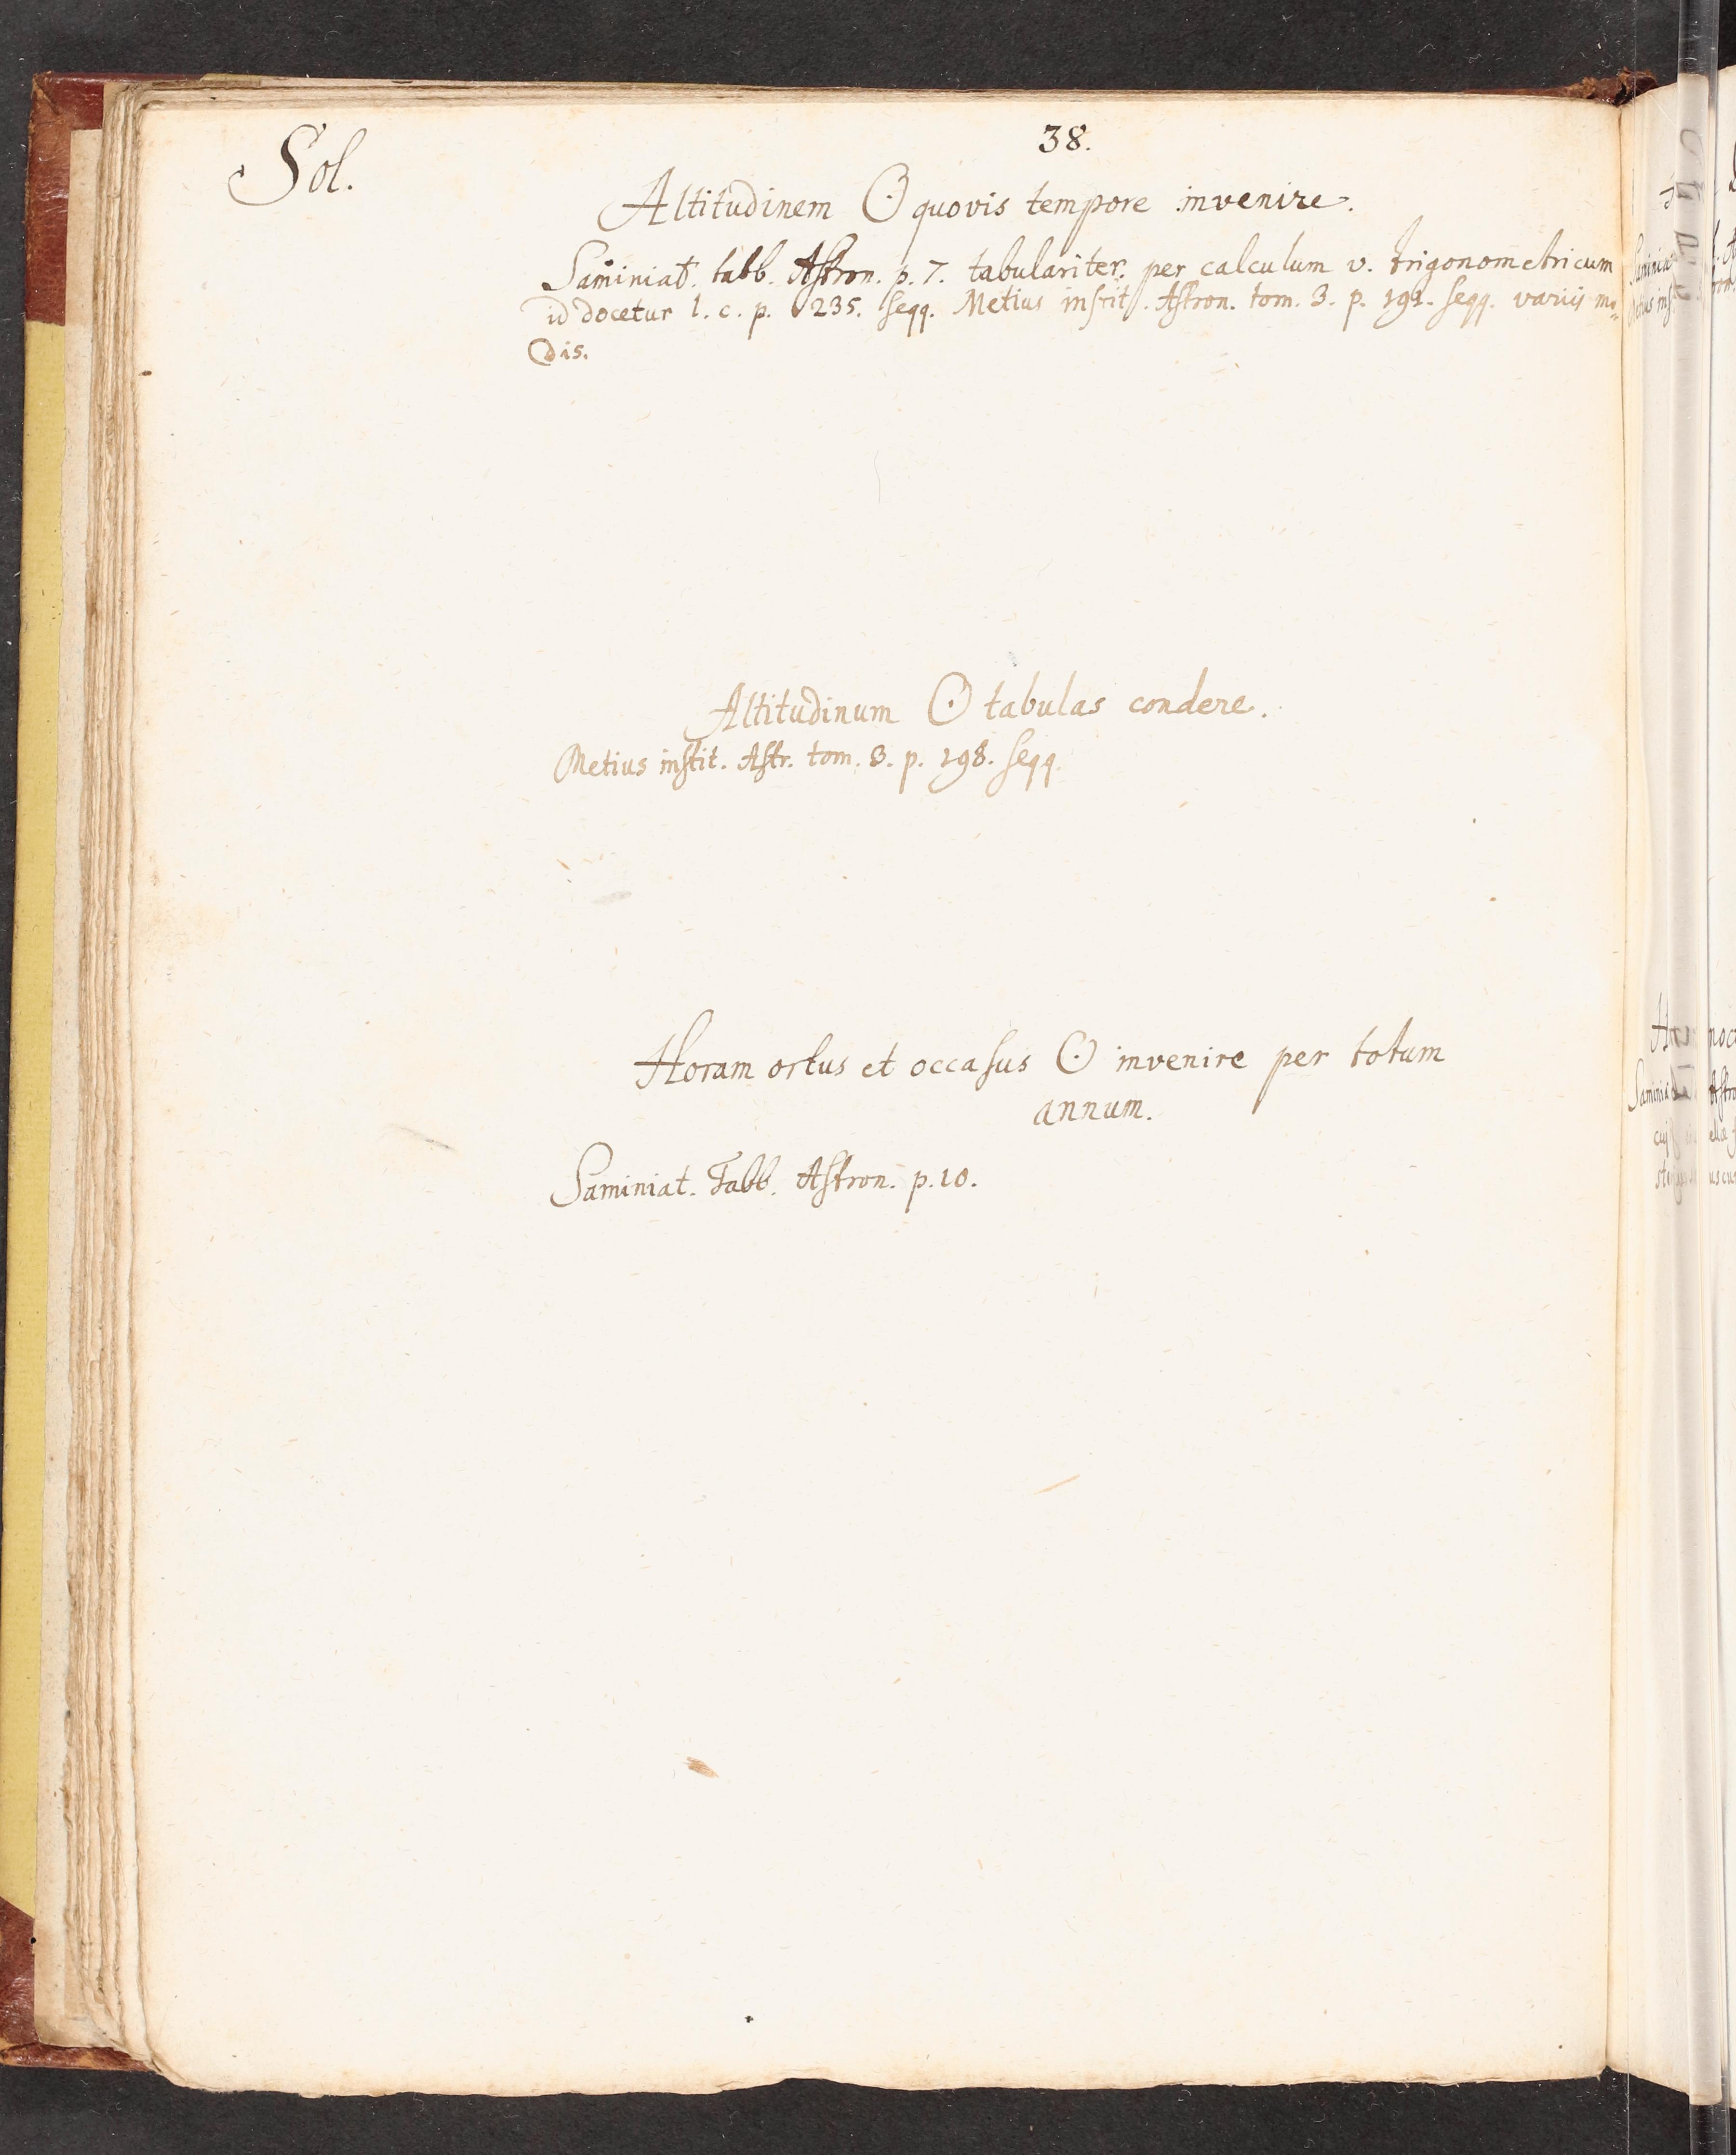 38.
Sol.
Altitudinem ☉ quovis tempore invenire.
Saminiat. tabb. Astron. p. 7. tabulariter. per calculum v. trigonometricum
id docetur l. c. p. 235. seqq. Metius instit. Astron. tom. 3. p. 191. seqq. variis mo„
dis.
Altitudinum ☉ tabulas condere.
Metius instit. Astr. tom. 3. p. 198. seqq.
Horam ortus et occasus ☉ invenire per totum
annum.
Saminiat. Tabb. Astron. p. 10.